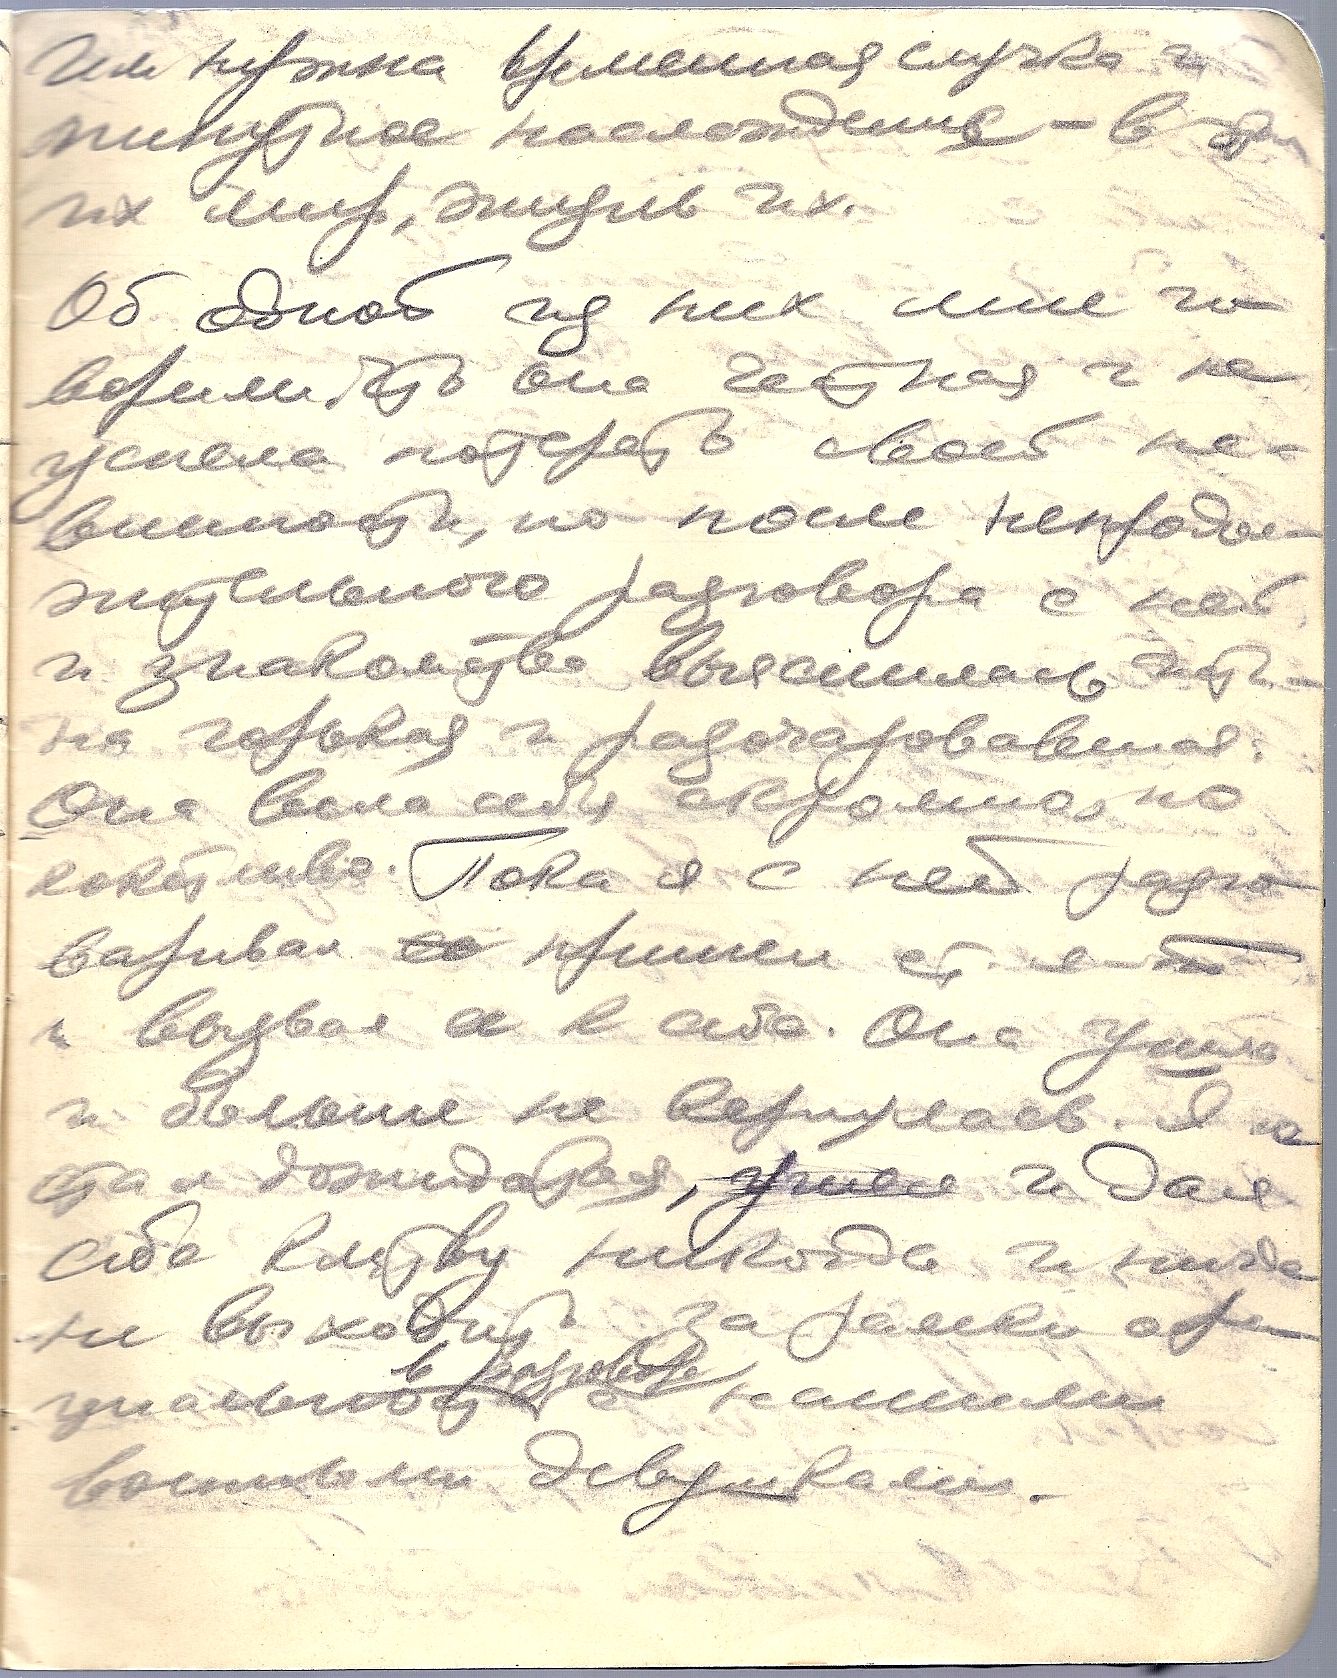 Им нужна временная случка и
минутное наслаждение – в этом
их мир, жизнь их.
Об одной из них мне го-
ворили, что она честная и не
успела потерять своей не-
винности, но после непродол-
жительного разговора с ней
и знакомства выяснилась исти-
на горькая и разочаровавшая.
Она вела себя скромно, но
кокетливо. Пока я с ней разго-
варивал пришел ст. л-т
и вызвал ее к себе. Она ушла
и больше не вернулась. Я не
стал дожидаться, ушел и дал
себе клятву никогда и нигде
не выходить за рамки офи-
циальности в разговоре с нашими
военными девушками.